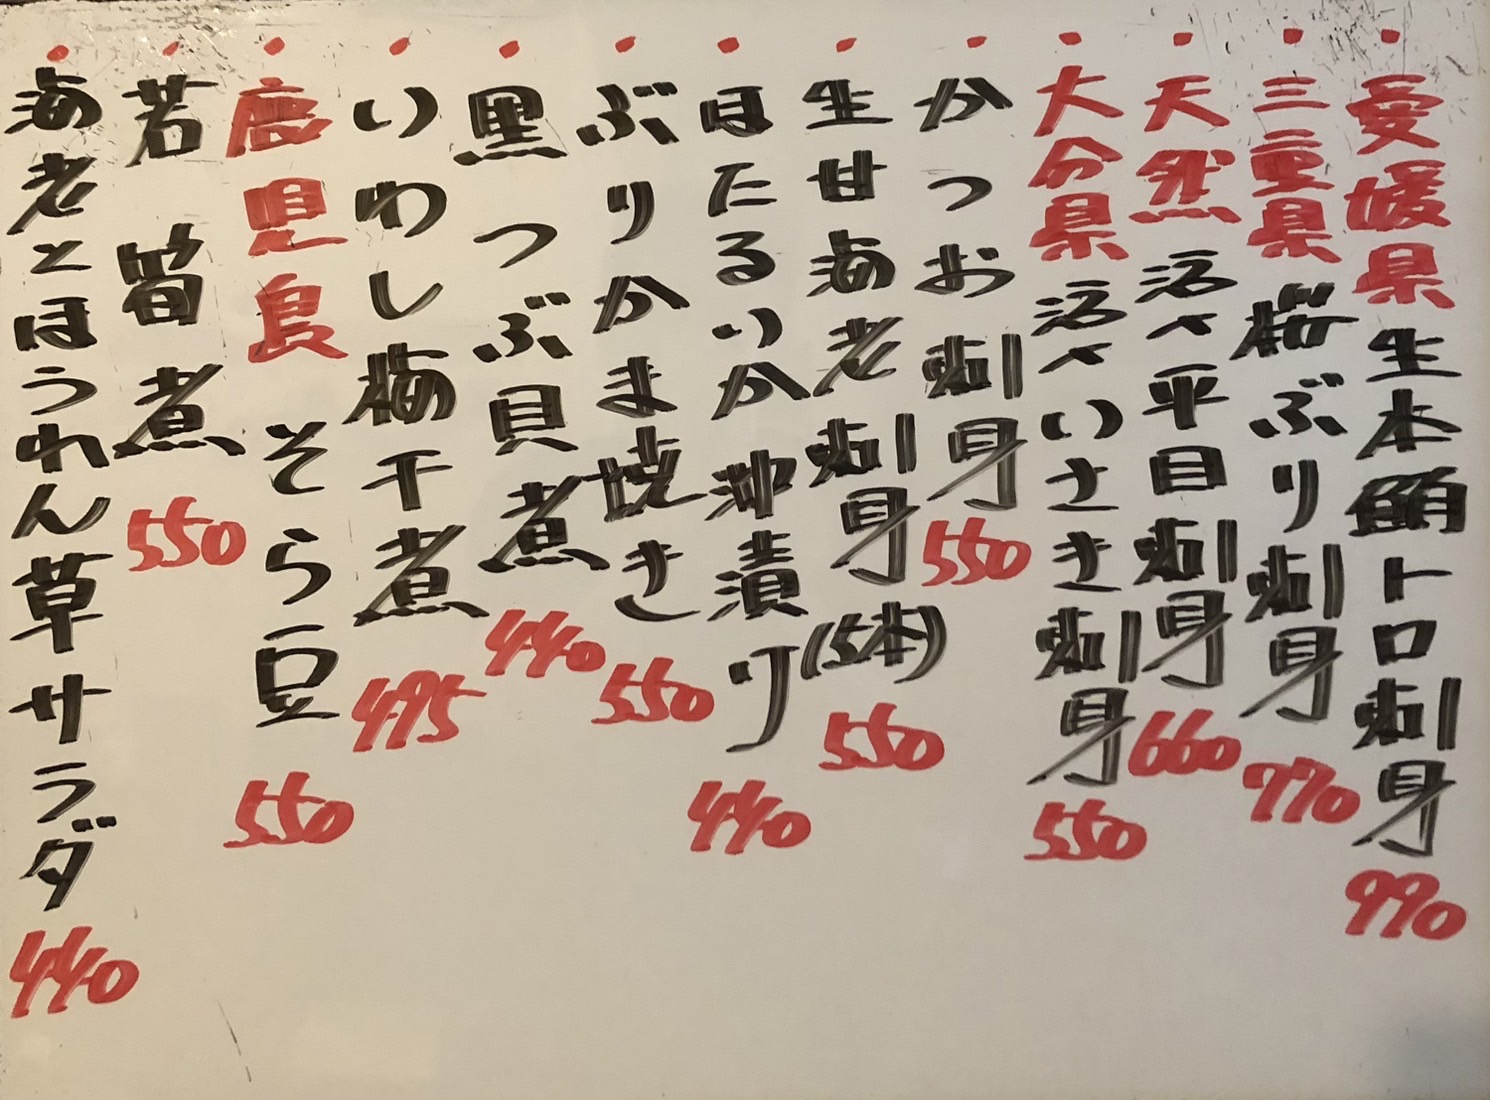 ・愛媛県生本鮪トロ刺身 990
・三重県桜ぶり刺身 770
・天然活〆平目刺身 660
・大分県活〆いさき刺身 550
・かつお刺身 550
・生甘海老刺身(5本) 550
・ほたるいか沖漬り 440
・ぶりかま焼き 550
・黒つぶ貝煮 440
・いわし梅干煮 495
・鹿児島そら豆 550
・若筍煮 550
・海老とほうれん草サラダ 440